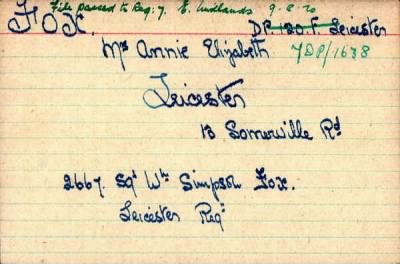 File passed to Reg: 7. E. Midlands 9.8.20
FOX. DR 120.F. Leicester
Mrs Annie Elizabeth 7DP/1638
Leicester
13 Somerville Rd
2667. Sgt Wm Simpson Fox.
Leicester Regt